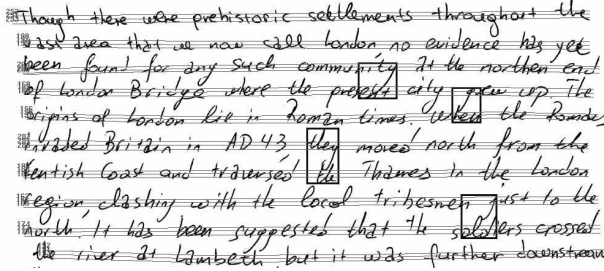 Though there were prehistoric settlements throughout the
vast area that we now call London, no evidence has yet
been found for any such community at the northen end
of London Bridge where the present city grew up. The
origins of London lie in Roman times. When the Romans
invaded Britain in AD 43, they moved north from the
Kentish Coast and traversed the Thames in the London
region, clashing with the local tribesmen just to the
north. It has been suggested that the soldiers crossed
the river at Lambeth but it was further downstream